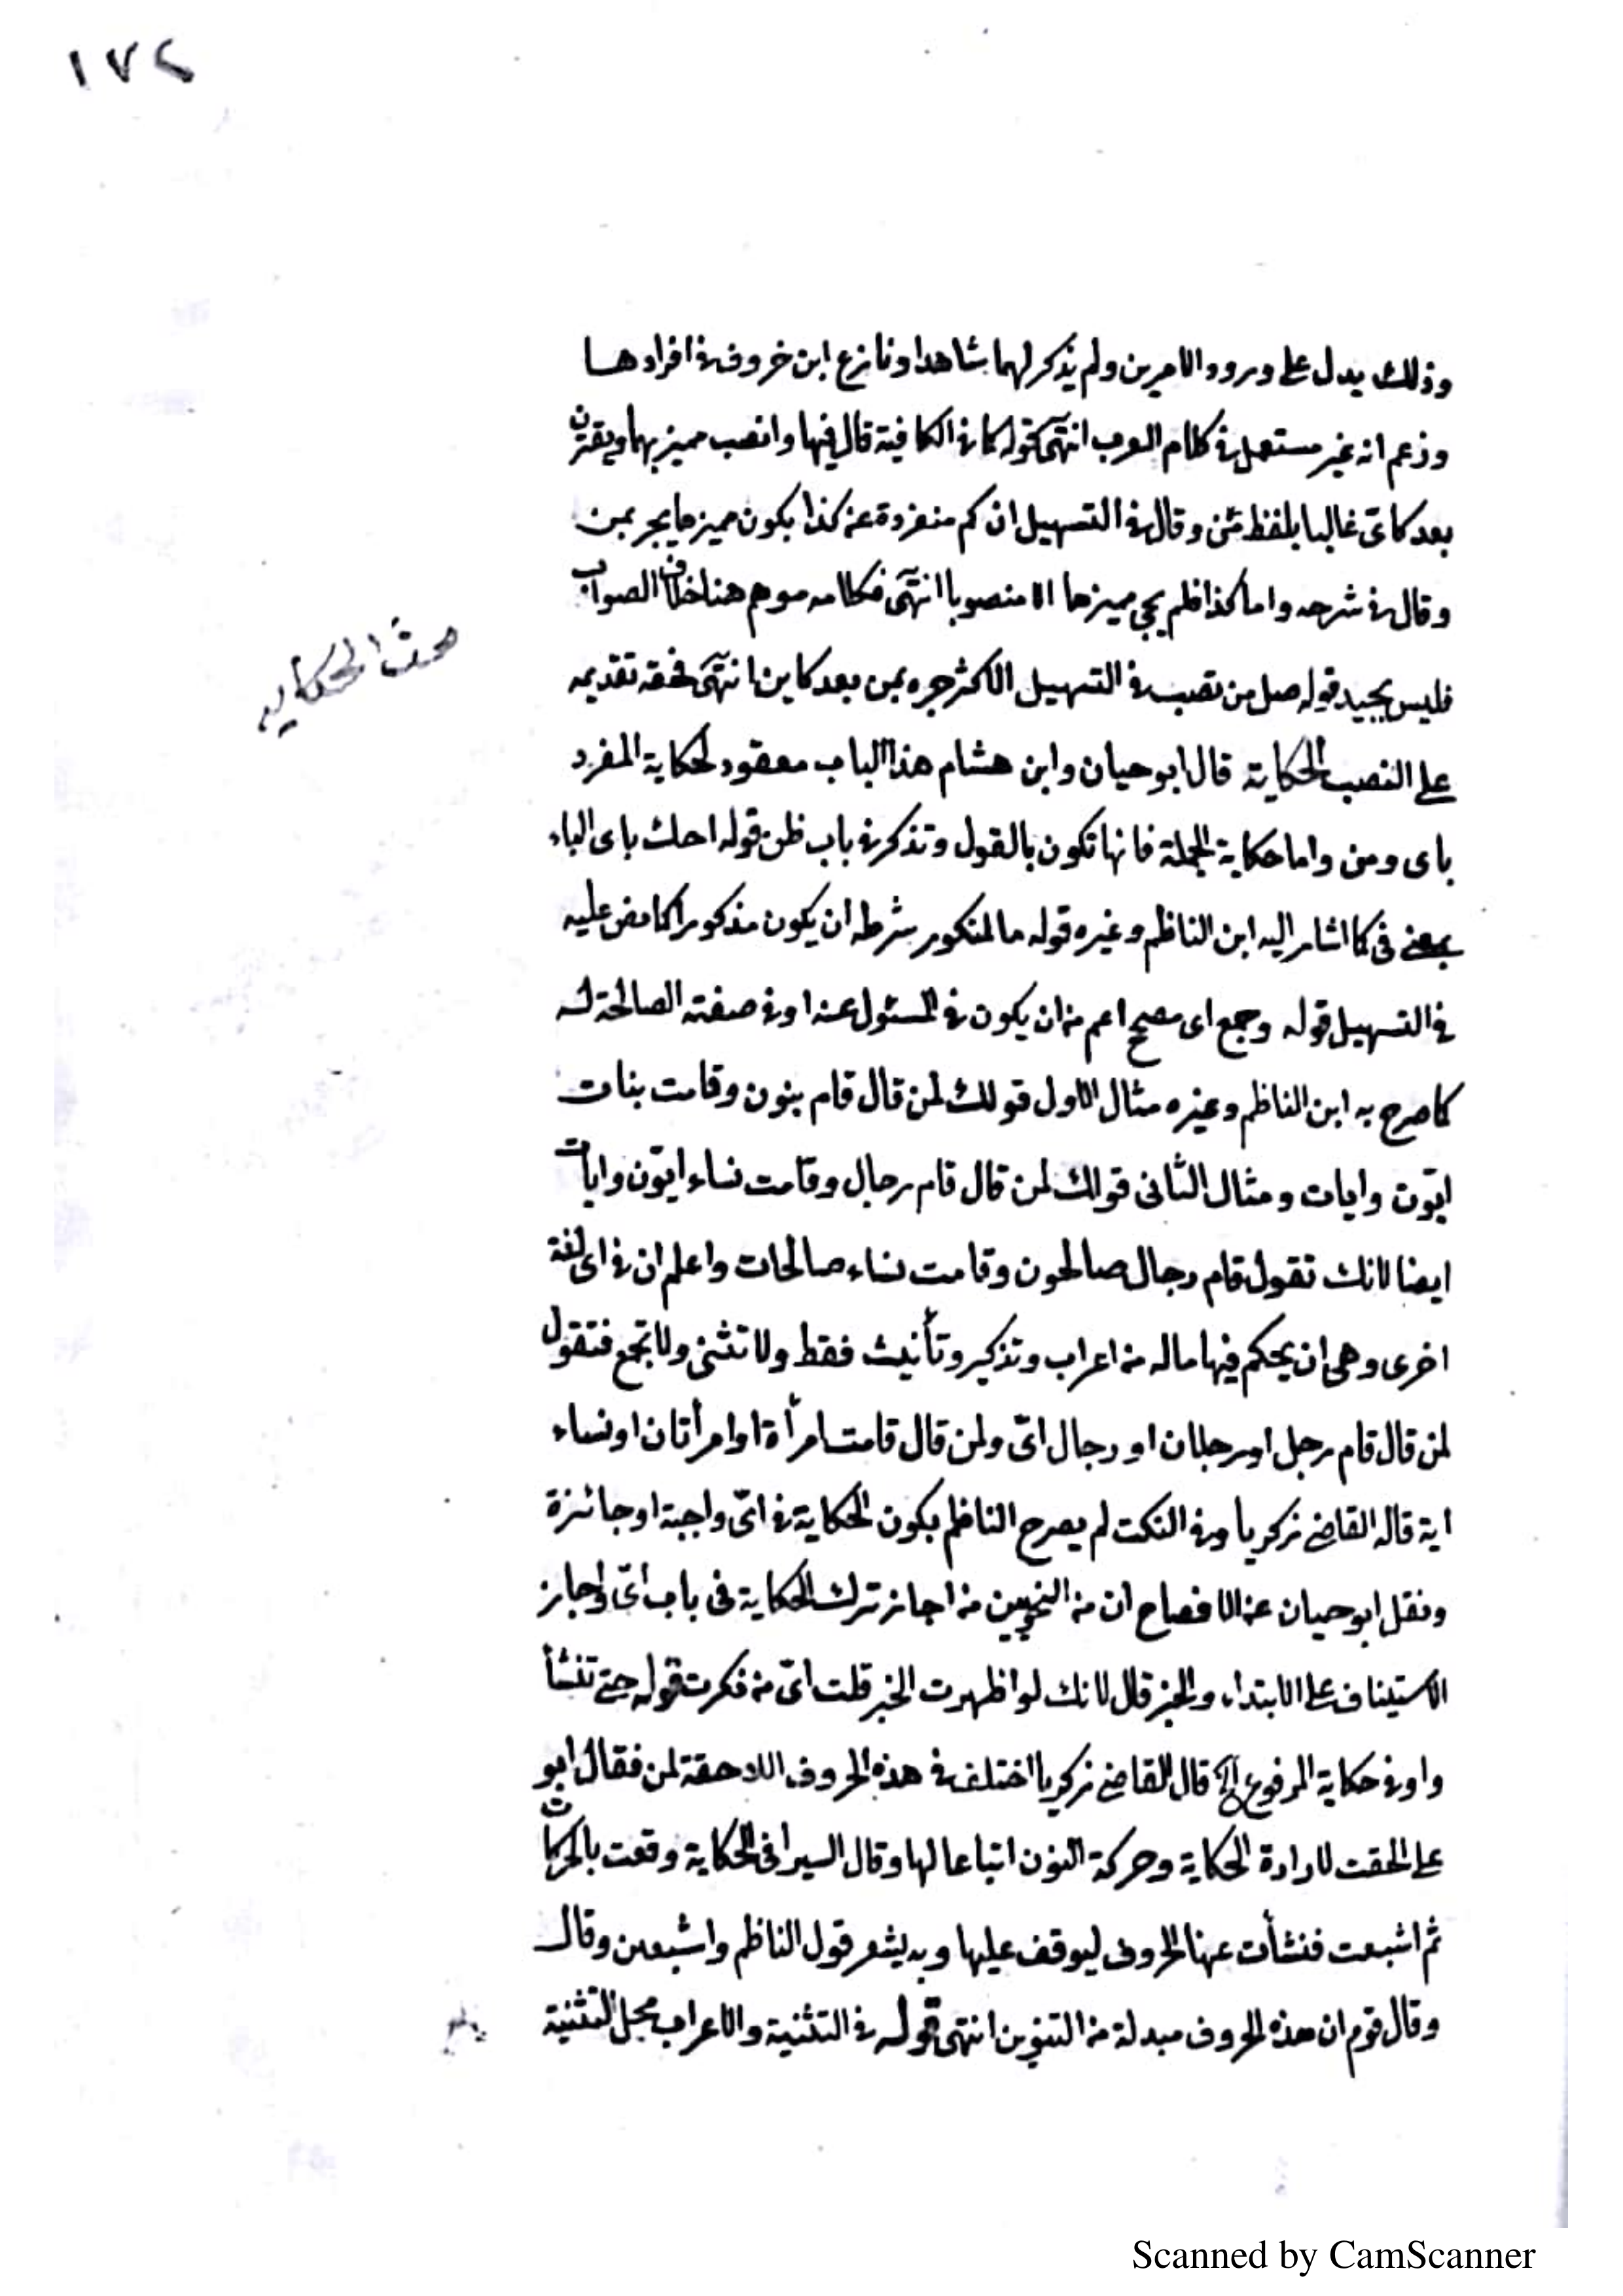 ١٧٢
وذلك يدل على ورود الامرين ولم يذكر لهما شاهدا ونازع ابن خروف في افرادها
وزعم انه غير مستعمل في كلام العرب انتهى قوله كما في الكافية قال فيها وانصب مميزيهما ويقترن
بعد كاي غالبا بلفظ من وقال في التسهيل ان كم منفردة عن كذا بكون مميزها يجر بمن
وقال في شرحه واما كذا فلم يجئ مميزها الا منصوبا انتهى فكلامه موهم هنا خلاف الصواب
فليس بجيد قوله صل من تصب في التسهيل الاكثر جره بمن بعد كاين انتهى فحقه تقديمه
على النصب الحكاية قال ابو حيان وابن هشام هذا الباب معقود لحكاية المفرد
باى ومن واما حكاية الجملة فانها تكون بالقول وتذكر في باب ظن قوله احك باى الباء
بمعنى في كما اشار اليه ابن الناظم وغيره قوله ما لمنكور شرطه ان يكون مذكورا كما نص عليه
في التسهيل قوله وجمع اى مصحح اعم من ان يكون في المسئول عنه او في صفته الصالحة له
كما صرح به ابن الناظم وغيره مثال الاول قولك لمن قال قام بنون وقامت بنات
ايّون وايات ومثال الثانى قولك لمن قال قام رجال وقامت نساء ايّون وايات
ايضا لانك تقول قام رجال صالحون وقامت نساء صالحات واعلم ان في اى لغة
اخرى وهى ان يحكم فيها ماله من اعراب وتذكير وتأنيث فقط ولا تثنى ولا تجمع فتقول
لمن قال قام رجل او رجلان او رجال اىّ ولمن قال قامت امرأة او امرأتان او نساء
اية قاله القاضى زكريا وفي النكت لم يصرح الناظم بكون الحكاية في اىّ واجبة او جائزة
ونقل ابو حيان عن الافصاح ان من النحويين من اجاز ترك الحكاية فى باب اىّ واجاز
الاستيناف على الابتداء والخبر قال لانك لو اظهرت الخبر قلت اىّ من ذكرت قوله حتى تنشأ
واو في حكاية المرفوع الخ قال القاضى زكريا اختلف في هذه الحروف اللاحقة لمن فقال ابو
على الحقت لارادة الحكاية وحركة النون اتباعا لها وقال السيرافى الحكاية وقعت بالحركات
ثم اشبعت فنشأت عنها الحروف ليوقف عليها وبه يشعر قول الناظم واشبعن وقال
وقال قوم ان هذه الحروف مبدلة من التنوين انتهى قوله في التثنية والاعراب محل التثنية
مبحث الحكاية
Scanned by CamScanner